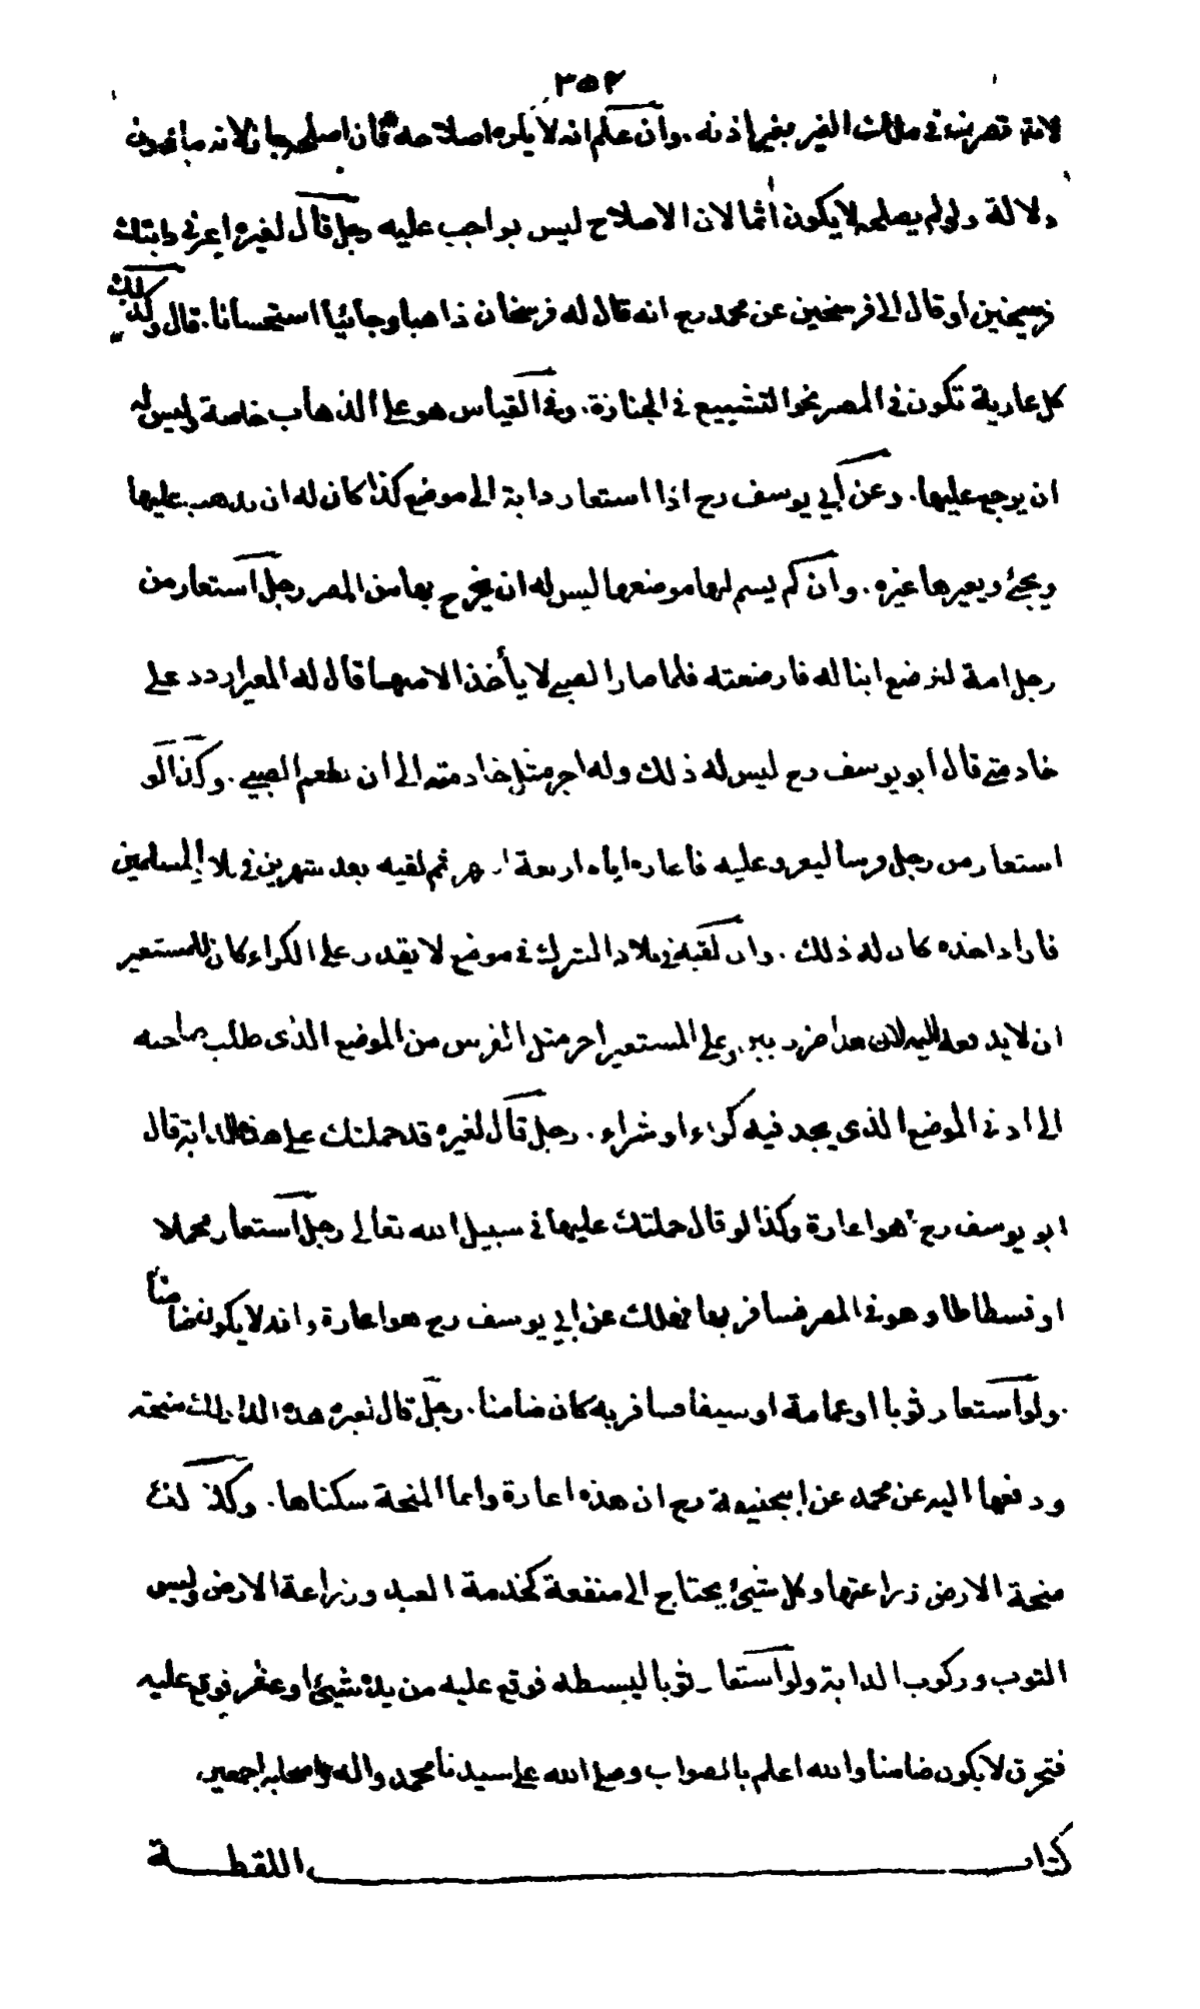 ٣٥٢
لانه تصرف في ملك الغير بغير اذنه . وان علم انه لا يكره اصلاحه فان اصلحه جاز لانه ماذون
دلالة ولو لم يصلحه لا يكون آثما لان الاصلاح ليس بواجب عليه رجل قال لغيره اعرني دابتك
فرسخين او قال الى فرسخين عن محمد رح انه قال له فرسخان ذاهبا وجائيا استحسانا . قال وكذلك
كل عارية تكون في المصر نحو التشييع في الجنازة . وفي القياس هو على الذهاب خاصة وليس له
ان يرجع عليها . وعن ابي يوسف رح اذا استعار دابة الى موضع كذا كان له ان يذهب عليها
ويجئ ويعيرها غيره . وان لم يسم لها موضعا ليس له ان يخرج بها من المصر رجل استعار من
رجل امة لترضع ابنا له فارضعته فلما صار الصبي لا يأخذ الا منها قال له المعير اردد علي
خادمتي قال ابو يوسف رح ليس له ذلك وله اجر مثل خادمته الى ان يطعم الصبي . وكذا لو
استعار من رجل فرسا ليغزو عليه فاعاره اياه اربعة اشهر ثم لقيه بعد شهرين في بلاد المسلمين
فاراد اخذه كان له ذلك . وان لقيه في بلاد الشرك في موضع لا يقدر على الكراء كان للمستعير
ان لا يدفعه اليه لان هذا ضرر بين وعلى المستعير اجر مثل الفرس من الموضع الذى طلب صاحبه
الى ادنى الموضع الذى يجد فيه كراء او شراء . رجل قال لغيره قد حملتك على هذه الدابة قال
ابو يوسف رح هو اعارة وكذا لو قال حملتك عليها في سبيل الله تعالى رجل استعار محملا
او فسطاطا وهو في المصر فسافر بها فهلك عن ابي يوسف رح هو اعارة وانه لا يكون ضامنا
ولو استعار ثوبا او عمامة او سيفا فسافر به كان ضامنا . رجل قال لغيره هذه الدار لك منيحة
ودفعها اليه عن محمد عن ابيحنيفة رح ان هذه اعارة وانما المنحة سكناها . وكذلك
منحة الارض زراعتها وكل شيئ يحتاج الى منفعة كخدمة العبد وزراعة الارض ولبس
الثوب وركوب الدابة ولو استعار ثوبا ليبسطه فوقع عليه من يده شيئ او عثر فوقع عليه
فتخرق لا يكون ضامنا والله اعلم بالصواب وصلى الله على سيدنا محمد واله واصحابه اجمعين
كتاب اللقطة